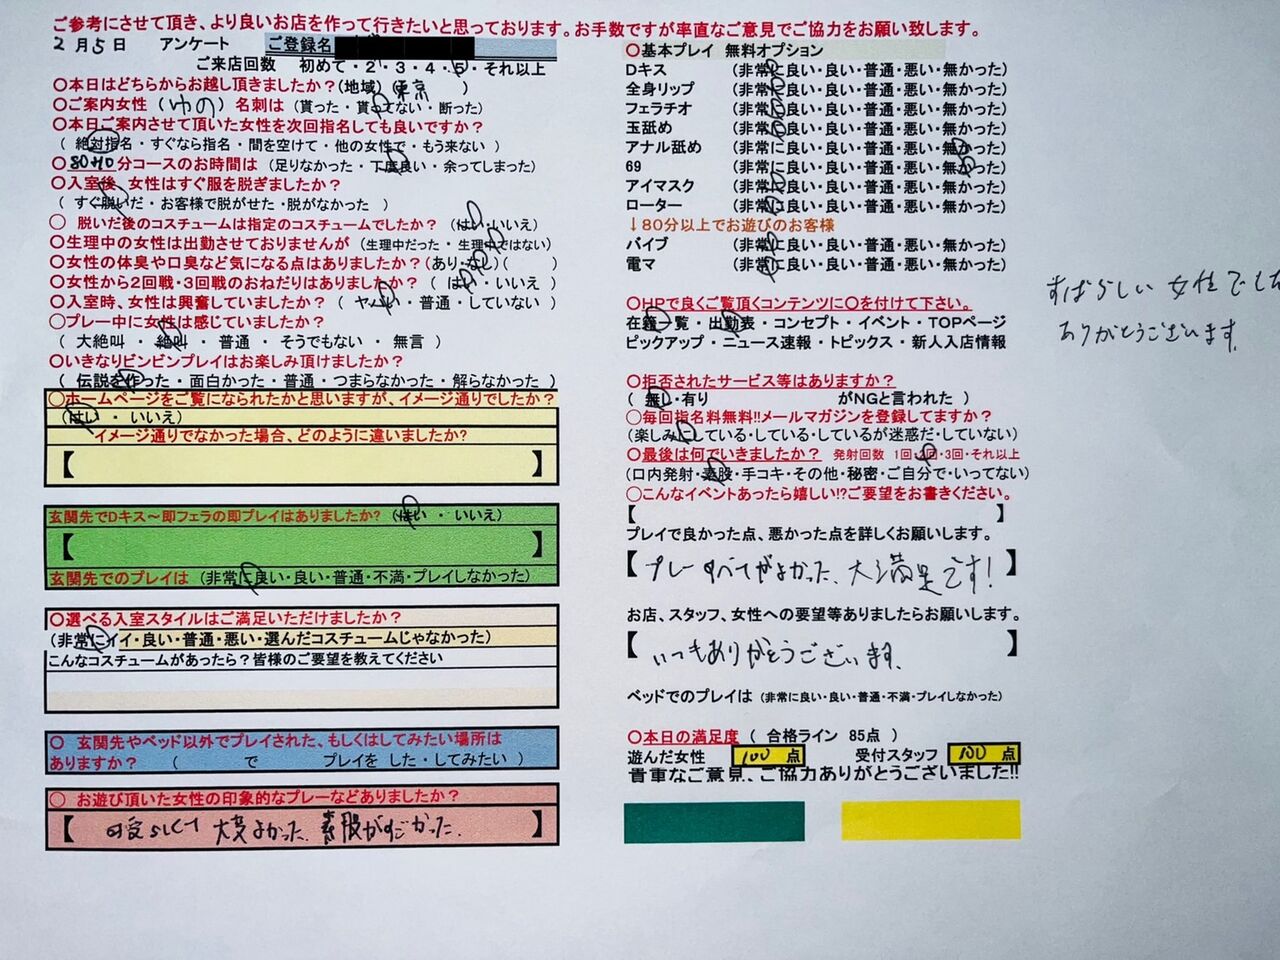 ご参考にさせて頂き、より良いお店を作って行きたいと思っております。お手数ですが率直なご意見でご協力をお願い致します。
2月5日 アンケート ご登録名
ご来店回数 初めて・2・3・4・5・それ以上
〇本日はどちらからお越し頂きましたか?(地域) 東京 )
〇ご案内女性(ゆの)名刺は(貰った・貰ってない・断った)
〇本日ご案内させて頂いた女性を次回指名しても良いですか?
( 絶対指名・すぐなら指名・間を空けて・他の女性で・もう来ない )
〇80+10分コースのお時間は(足りなかった・丁度良い・余ってしまった)
〇入室後、女性はすぐ服を脱ぎましたか?
( すぐ脱いだ・お客様で脱がせた・脱がなかった )
〇 脱いだ後のコスチュームは指定のコスチュームでしたか? (はい・いいえ)
〇生理中の女性は出勤させておりませんが(生理中だった・生理中ではない)
〇女性の体臭や口臭など気になる点はありましたか?(あり・なし)( )
〇女性から2回戦・3回戦のおねだりはありましたか?( はい・いいえ )
〇入室時、女性は興奮していましたか?( ヤバい・普通・していない )
〇プレー中に女性は感じていましたか?
( 大絶叫・絶叫・普通・そうでもない・無言 )
〇いきなりビンビンプレイはお楽しみ頂けましたか?
( 伝説を作った・面白かった・普通・つまらなかった・解らなかった )
〇ホームページをご覧になられたかと思いますが、イメージ通りでしたか?
(はい ・ いいえ)
イメージ通りでなかった場合、どのように違いましたか?
【 】
玄関先でDキス～即フェラの即プレイはありましたか? (はい ・ いいえ)
【 】
玄関先でのプレイは (非常に良い・良い・普通・不満・プレイしなかった)
〇選べる入室スタイルはご満足いただけましたか?
(非常にイイ・良い・普通・悪い・選んだコスチュームじゃなかった)
こんなコスチュームがあったら?皆様のご要望を教えてください
〇 玄関先やベッド以外でプレイされた、もしくはしてみたい場所は
ありますか? ( で プレイを した・してみたい )
〇 お遊び頂いた女性の印象的なプレーなどありましたか?
【 可愛らしくて 大変よかった。素股がすごかった。 】
〇基本プレイ 無料オプション
Dキス (非常に良い・良い・普通・悪い・無かった)
全身リップ (非常に良い・良い・普通・悪い・無かった)
フェラチオ (非常に良い・良い・普通・悪い・無かった)
玉舐め (非常に良い・良い・普通・悪い・無かった)
アナル舐め (非常に良い・良い・普通・悪い・無かった)
69 (非常に良い・良い・普通・悪い・無かった)
アイマスク (非常に良い・良い・普通・悪い・無かった)
ローター (非常に良い・良い・普通・悪い・無かった)
↓80分以上でお遊びのお客様
バイブ (非常に良い・良い・普通・悪い・無かった)
電マ (非常に良い・良い・普通・悪い・無かった)
〇HPで良くご覧頂くコンテンツに〇を付けて下さい。
在籍一覧・出勤表・コンセプト・イベント・TOPページ
ピックアップ・ニュース速報・トピックス・新人入店情報
〇拒否されたサービス等はありますか?
( 無し・有り がNGと言われた )
〇毎回指名料無料!!メールマガジンを登録してますか?
(楽しみにしている・している・しているが迷惑だ・していない)
〇最後は何でいきましたか? 発射回数 1回・2回・3回・それ以上
(口内発射・素股・手コキ・その他・秘密・ご自分で・いってない)
〇こんなイベントあったら嬉しい!?ご要望をお書きください。
【 】
プレイで良かった点、悪かった点を詳しくお願いします。
【 プレーすべてがよかった、大満足です! 】
お店、スタッフ、女性への要望等ありましたらお願いします。
【 いつもありがとうございます。 】
ベッドでのプレイは (非常に良い・良い・普通・不満・プレイしなかった)
〇本日の満足度 ( 合格ライン 85点 )
遊んだ女性 100 点 受付スタッフ 100 点
貴重なご意見、ご協力ありがとうございました!!
すばらしい女性でした
ありがとうございます。